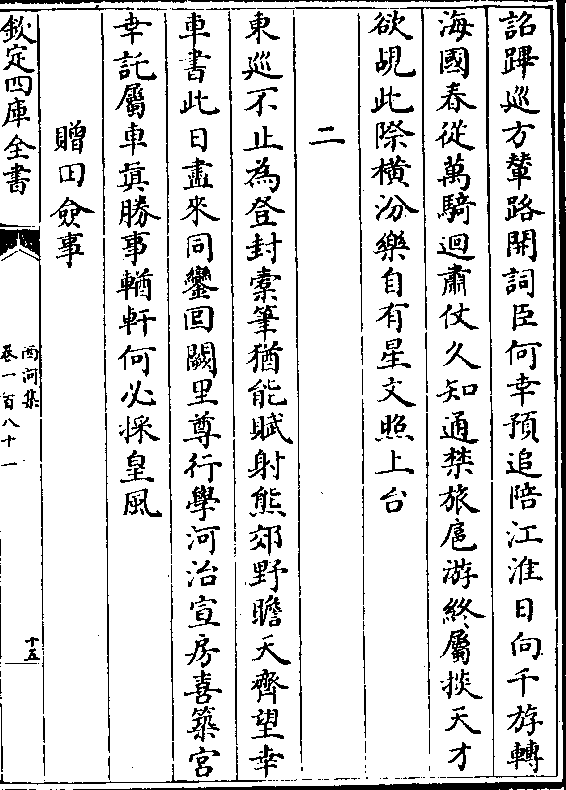 詔蹕巡方輦路開詞臣何幸預追陪江淮日向千斿轉
海國春從萬騎迴肅仗久知通禁旅扈游終屬掞天才
欲覘此際橫汾樂自有星文照上台
二
東巡不止為登封橐筆猶能賦射熊郊野瞻天齊望幸
車書此日盡來同鑾回闕里尊行學河治宣房喜築宮
幸託屬車真勝事輶軒何必採皇風
贈田僉事
欽定四庫全書
西河集
卷一百八十一
十五